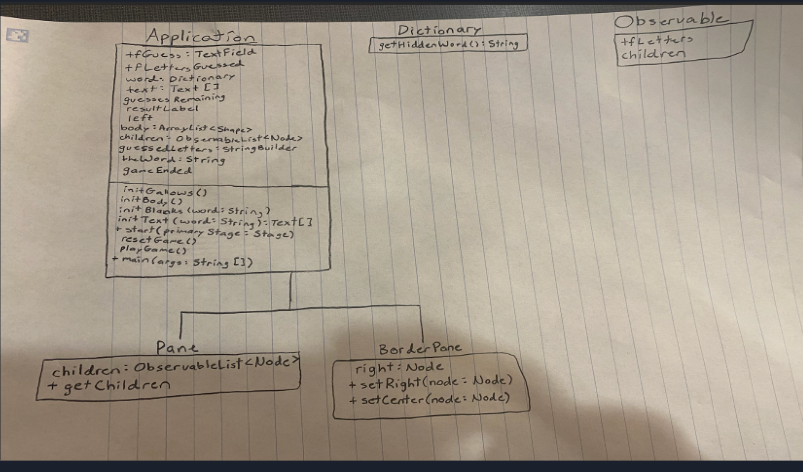 Application
+fGuess: TextField
+fLettersGuessed
word: Dictionary
text: Text []
guessesRemaining
resultLabel
left
body: ArrayList<Shape>
children: ObservableList<Node>
guessedLetters: StringBuilder
theWord: String
gameEnded
initGallows()
initBody()
initBlanks (word: String)
initText (word: String): Text[]
+ start(primary Stage: Stage)
resetGame()
playGame()
+ main(args: String [])
Dictionary
getHiddenWord(): String
Observable
+fLetters
children
Pane
children: ObservableList<Node>
+ getChildren
BorderPane
right: Node
+ setRight(node: Node)
+ setCenter(node: Node)